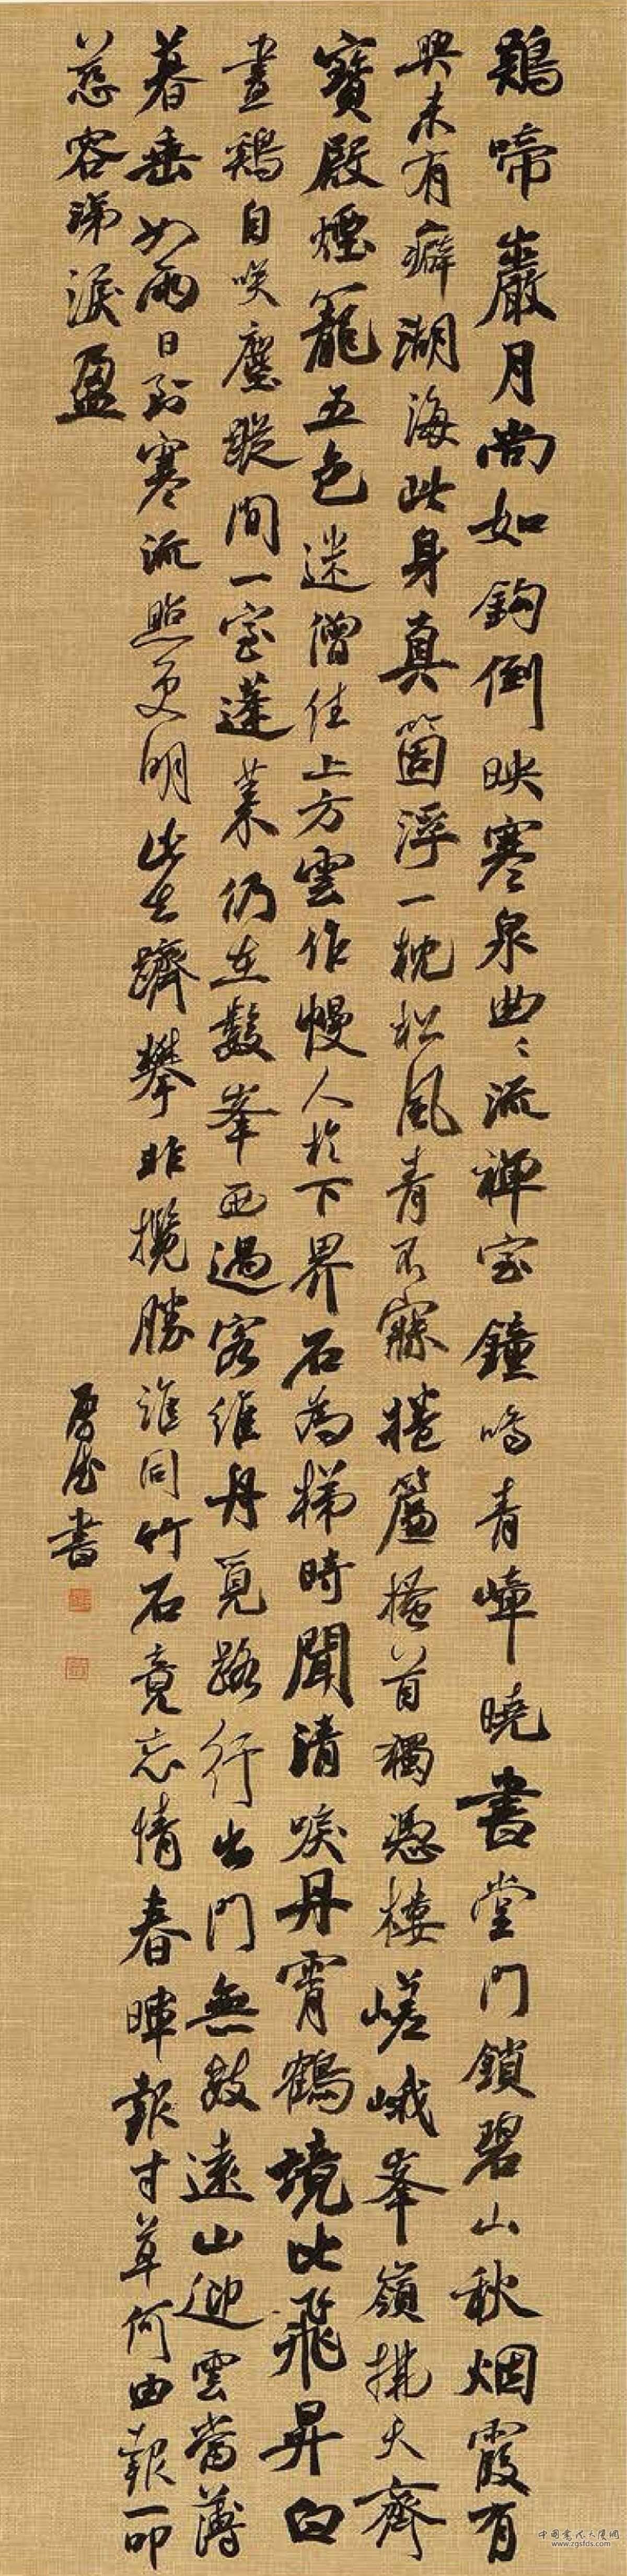 鷄啼巖月尚如鉤倒映寒泉曲〻流禪室鐘鳴青嶂曉書堂門鎖碧山秋烟霞有
興未有癖湖海此身真箇浮一枕松風青不寐捲簾搔首獨憑樓嵯峨峯嶺拂天齊
寶殿煙籠五色迷僧住上方雲作幔人於下界石為梯時聞清唳丹霄鶴境比飛昇白
晝鷄自咲塵蹤閒一宿蓬萊仍在數峯西過客維舟覓路行出門無數遠山迎雲當薄
暮垂如雨日到寒流照更明此去躋攀非攬勝誰同竹石竟忘情春暉報寸草何由報一叩
慈容涕淚盈
書
中國書法大優網
www.zgsfds.com